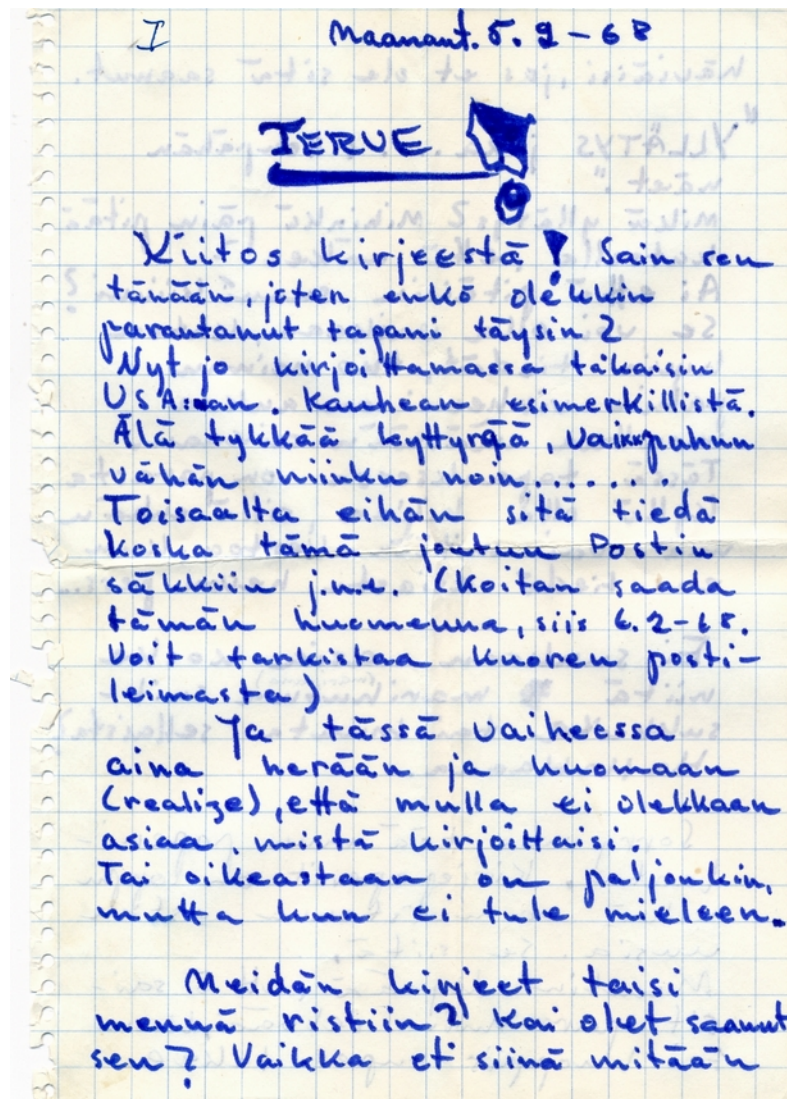 I Maanant. 5. 2 - 68
TERVE !
Kiitos kirjeestä ! Sain sen
tänään, joten enkö olekkin
parantanut tapani täysin ?
Nyt jo kirjoittamassa takaisin
USA:aan. Kauhean esimerkillistä.
Älä tykkää kyttyrää, vaikk puhun
vähän niinku noin......
Toisaalta eihän sitä tiedä
koska tämä joutuu Postin
säkkiin j.n.e. (Koitan saada
tämän huomenna, siis 6.2-68.
Voit tarkistaa kuoren posti-
leimasta)
Ja tässä vaiheessa
aina herään ja huomaan
(realize), että mulla ei olekkaan
asiaa, mistä kirjoittaisi.
Tai oikeastaan on paljonkin,
mutta kun ei tule mieleen.
Meidän kirjeet taisi
mennä ristiin ? Kai olet saanut
sen ? Vaikka et siinä mitään